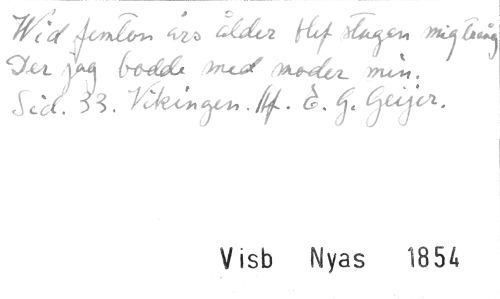 Wid femton års ålder blef stugan mig trång
Der jag bodde med moder min.
Sid. 33. Vikingen. Af. E. G. Geijer.
Visb Nyas 1854